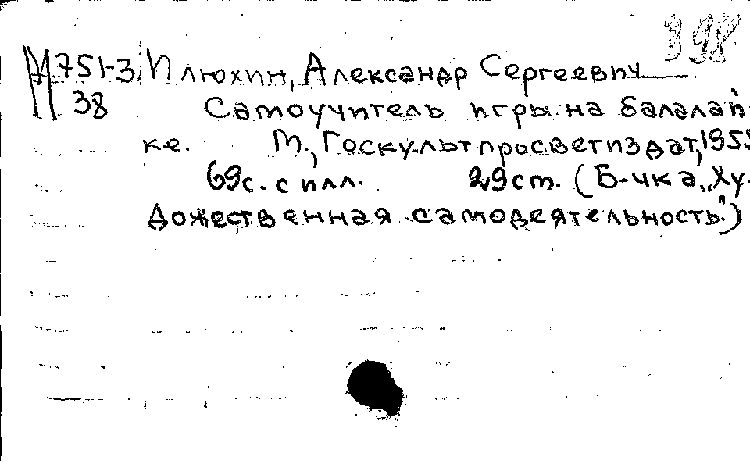 398
М751-3 Илюхин, Александр Сергеевич
38 Самоучитель игры на балалай-
ке. М., Госкультпросветиздат, 195
69 с. с илл. 29 cm. (Б-чка „Ху-
дожественная самодеятельность".)